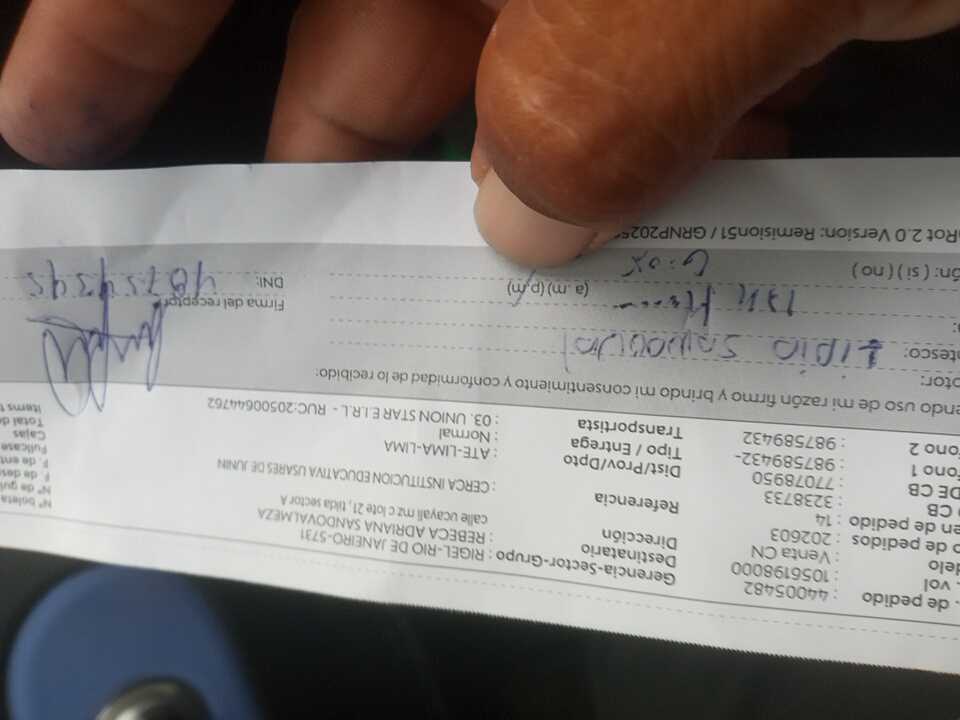 . de pedido : 44005482 Gerencia-Sector-Grupo : RIGEL-RIO-DE JANEIRO-5731
. vol : 1056198000 Destinatario : REBECA ADRIANA SANDOVALMEZA
delo : Venta CN Dirección calle ucayali mz c lote 21, tilda sector A
o de pedidos : 202603
en de pedido : 14 Referencia : CERCA INSTITUCION EDUCATIVA USARES DE JUNIN
o CB : 3238733
DE CB : 77078950 Dist/Prov/Dpto : ATE-LIMA-LIMA
fono 1 : 987589432- Tipo / Entrega : Normal
fono 2 : 987589432 Transportista : 03. UNION STAR E.I.R.L - RUC:20500644762
Nº boleta
Nº de guí
F. de des
F. de ent
Fullcase
Cajas
Total de
Items t
endo uso de mi razón firmo y brindo mi consentimiento y conformidad de lo recibido:
ptor: Lidia Sandoval
ntesco:
(a.m)(p.m) Firma del receptor
ón: ( si ) ( no ) DNI: 40754345
Rot 2.0 Version: Remision51 / GRNP2025